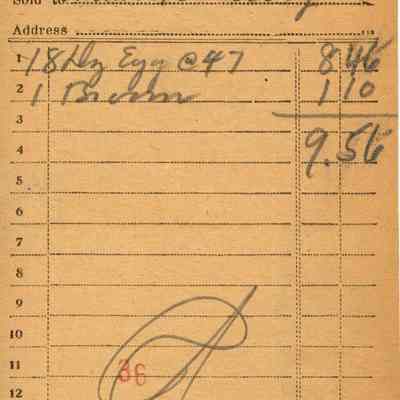 Sold to
Address
1 18 Dz Egg @ 47 8 46
2 1 Broom 1 10
3
4 9.56
5
6
7
8
9
10
11 36
12